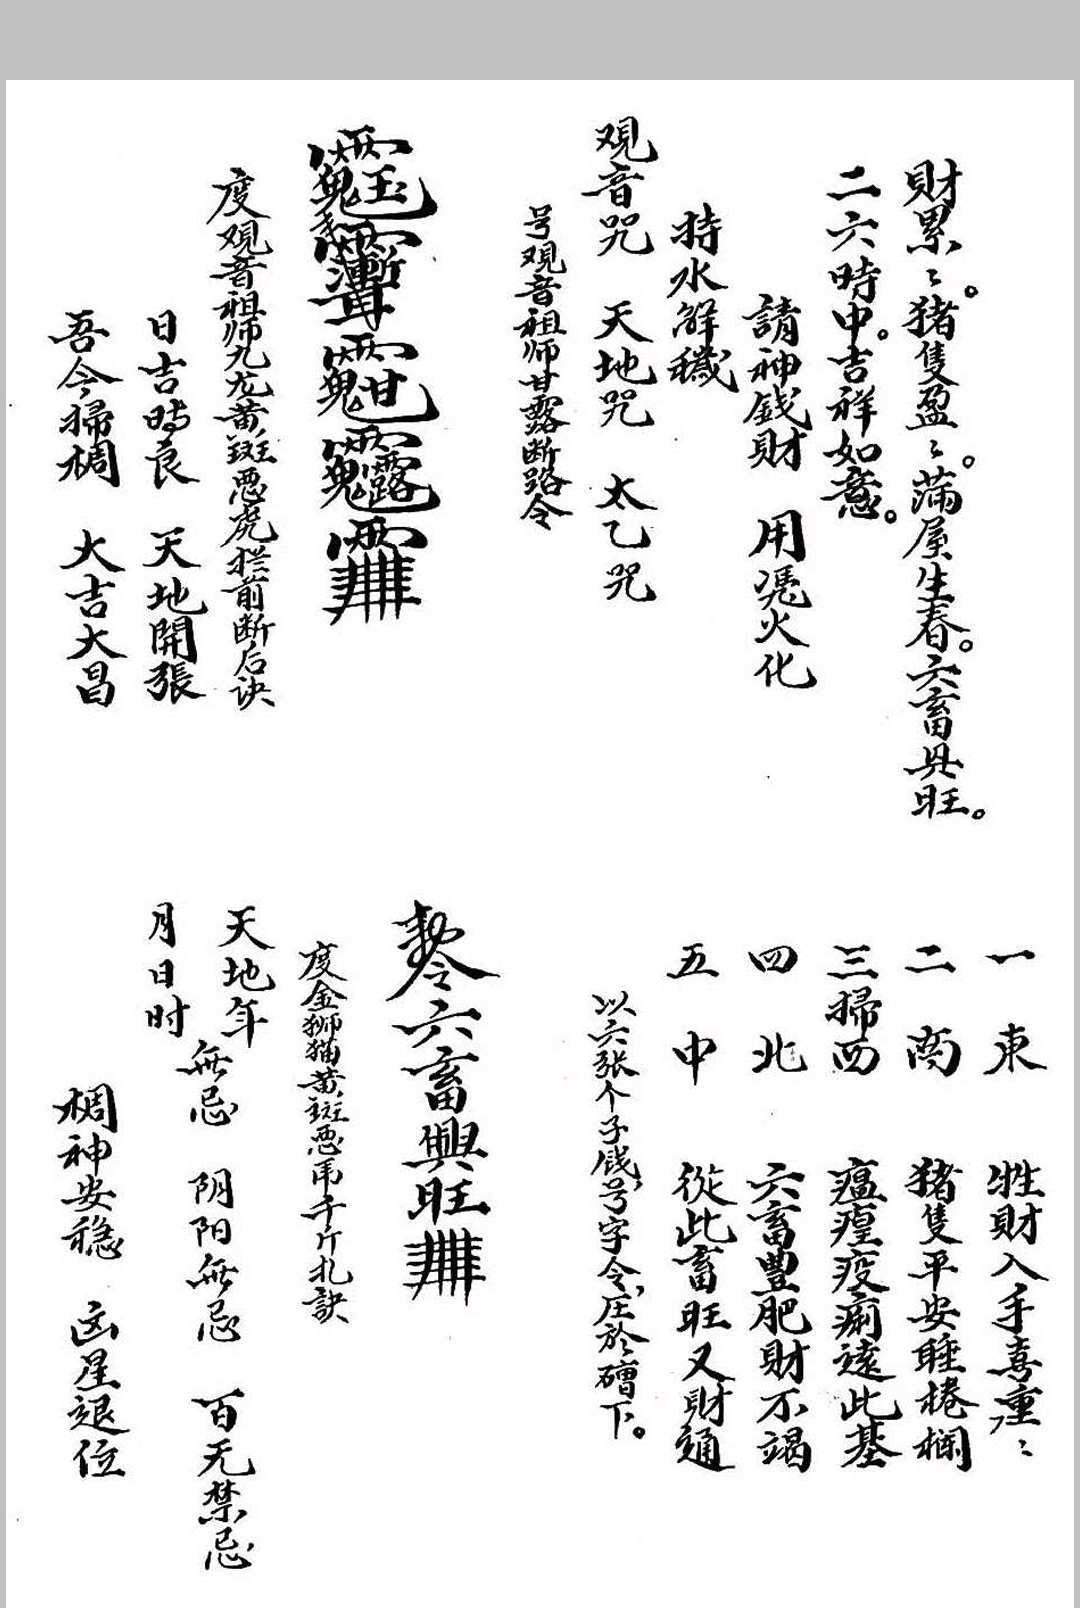 財累〻。猪隻盈〻。滿屋生春。六畜興旺。
二六時中。吉祥如意。
請神錢財 用憑火化
持水解穢
观音咒 天地咒 太乙咒
号观音祖师甘露断路令
度观音祖师九龙黄斑恶虎拦前断后诀
日吉時良 天地開張
吾今掃椆 大吉大昌
一東 牲財入手喜重〻
二南 猪隻平安睡棬欄
三掃西 瘟瘟疫痢遠此基
四北 六畜豊肥財不竭
五中 從此畜旺又財通
以六张个子钱,号字令,庄於磳下。
令六畜興旺
度金狮猫黄斑恶吊千斤扎訣
天地年
月日时
無忌 阴阳無忌 百无禁忌
椆神安穏 凶星退位